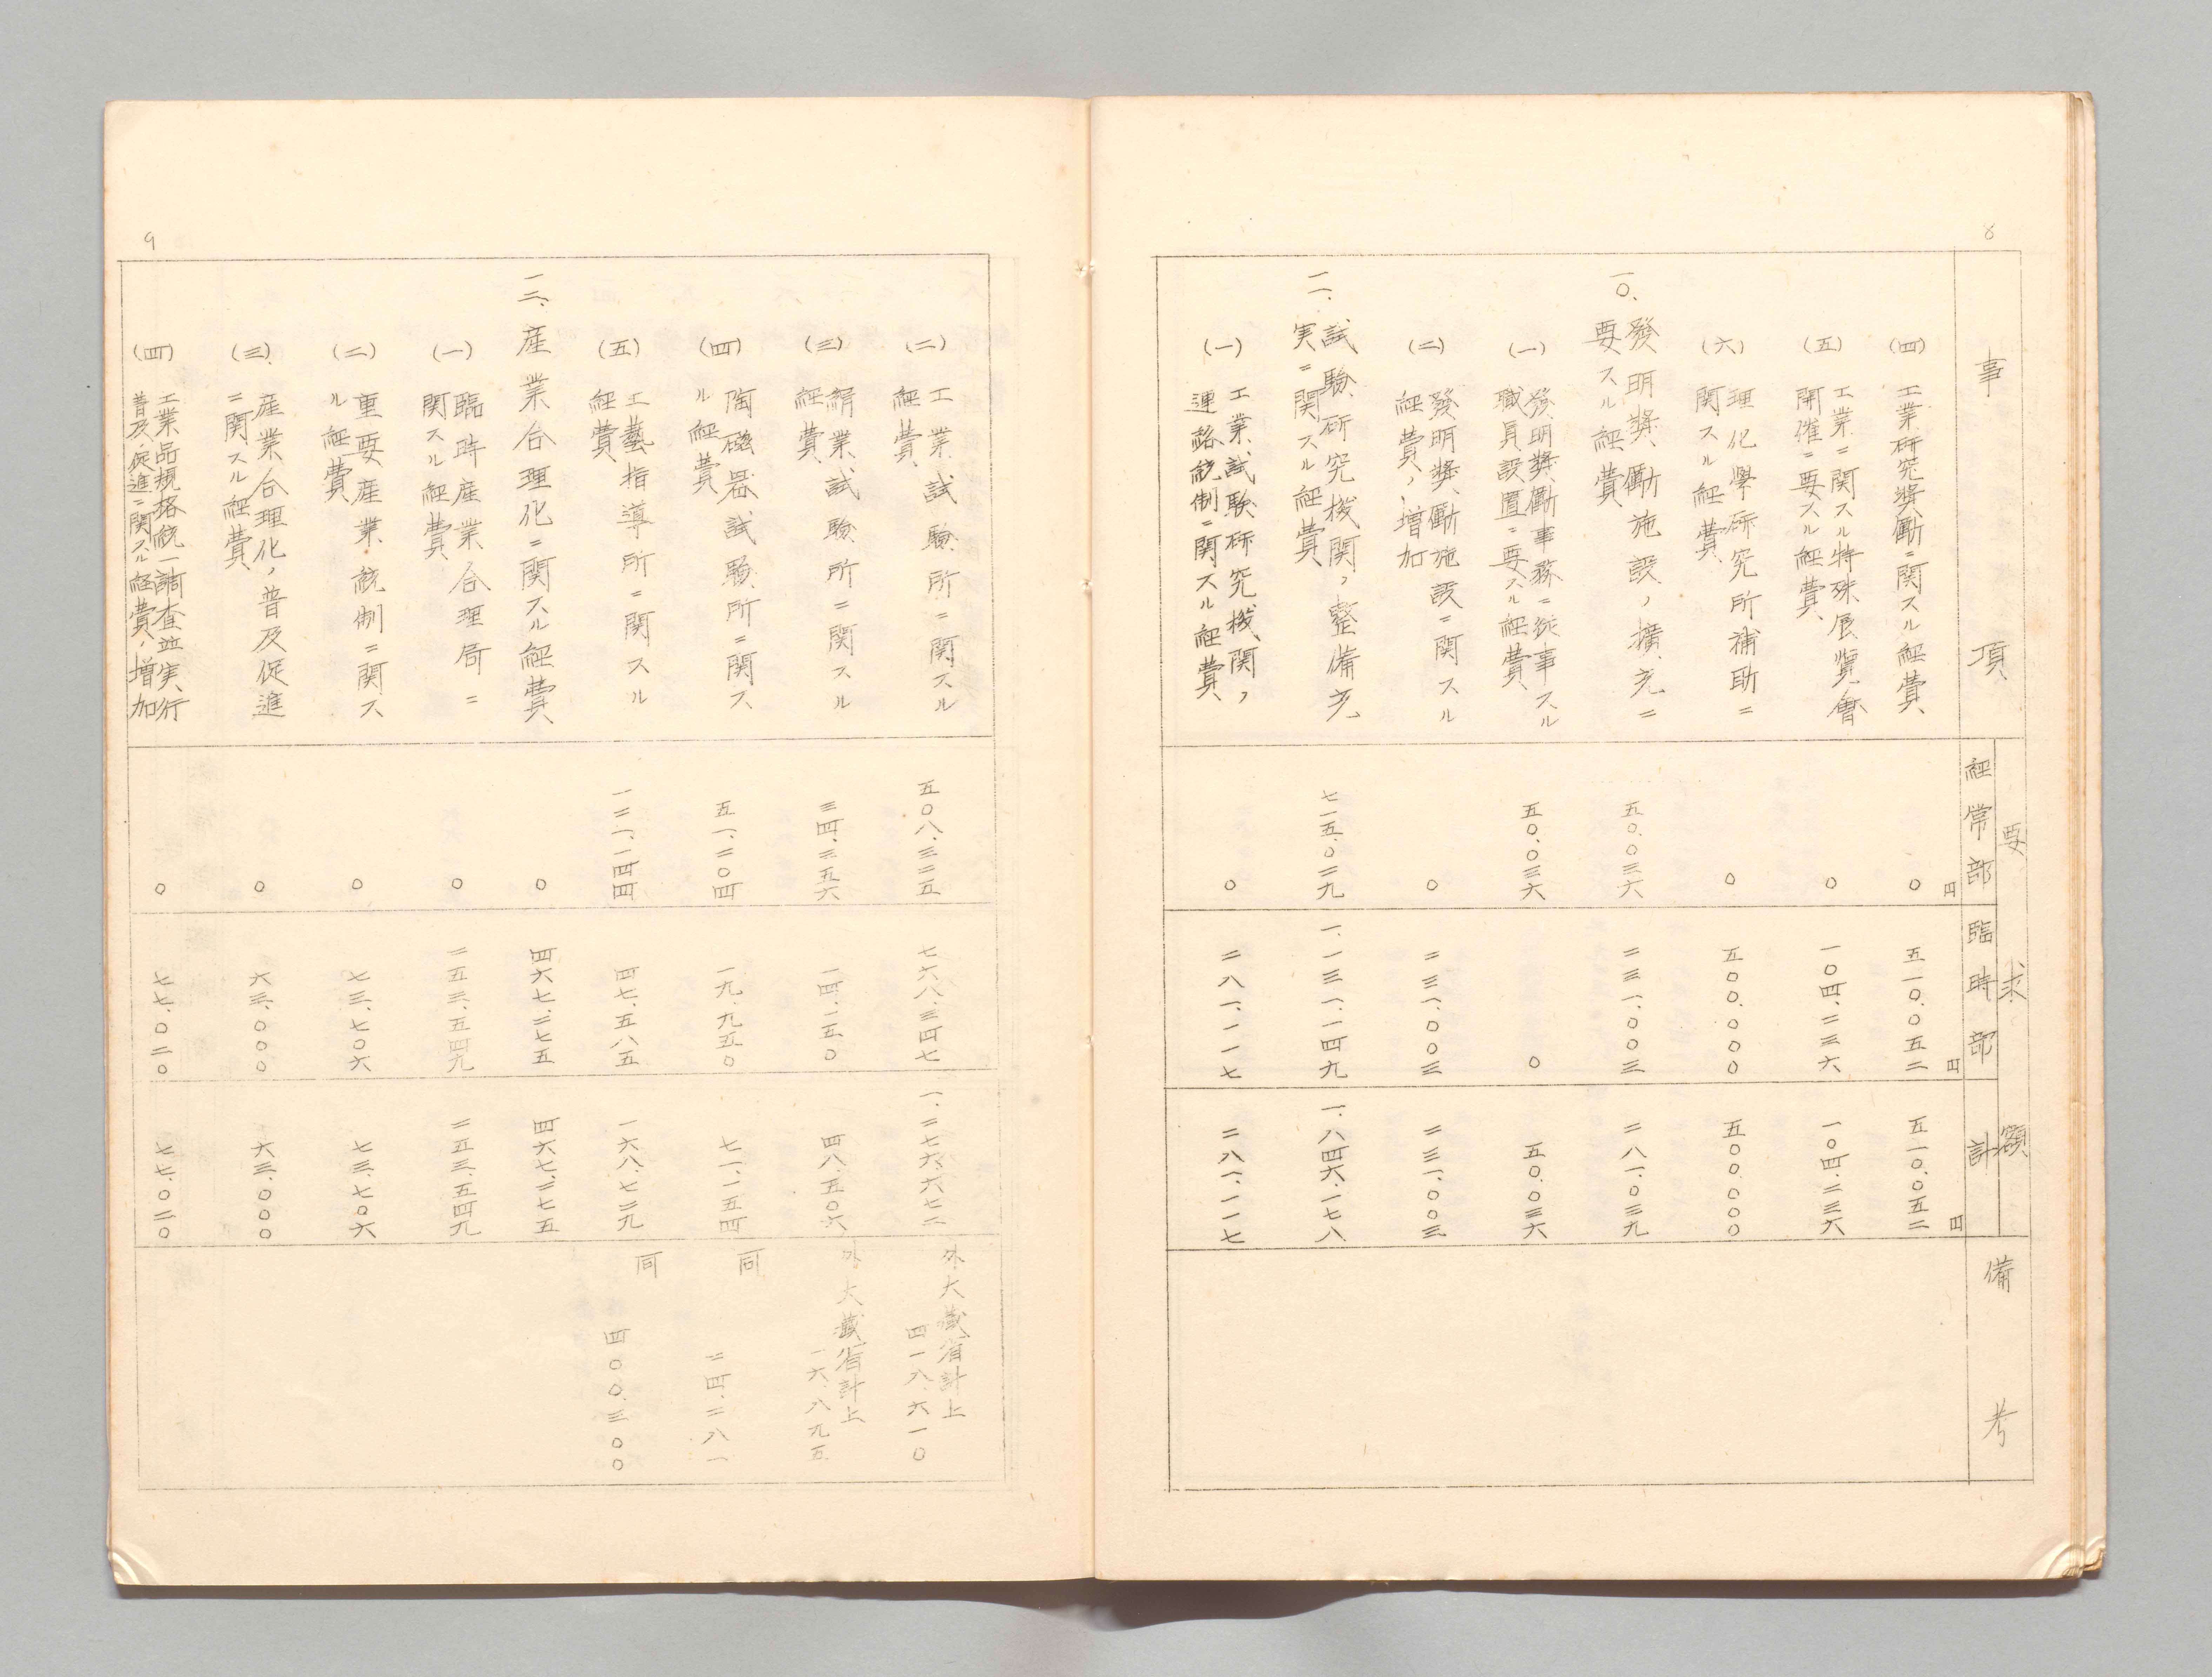 8
事項
要求額
経常部
臨時部
計
備考
円
円
円
(四) 工業研究奨励ニ関スル経費
〇
五一〇.〇五二
五一〇.〇五二
(五) 工業ニ関スル特殊展覧會
開催ニ要スル経費
〇
一〇四.二三六
一〇四.二三六
(六) 理化學研究所補助ニ
関スル経費
〇
五〇〇.〇〇〇
五〇〇.〇〇〇
一〇、發明奨励施設ノ擴充ニ
要スル経費
五〇.〇三六
二三一.〇〇三
二八一.〇三九
(一) 發明奨励事務ニ從事スル
職員設置ニ要スル経費
五〇.〇三六
〇
五〇.〇三六
(二) 發明奨励施設ニ関スル
経費ノ増加
〇
二三一.〇〇三
二三一.〇〇三
一一、試験研究機関ノ整備充
実ニ関スル経費
七一五.〇二九
一.一三一.一四九
一.八四六.一七八
(一) 工業試験研究機関ノ
連絡統制ニ関スル経費
〇
二八一.一一七
二八一.一一七
9
(二) 工業試験所ニ関スル
経費
五〇八.三二五
七六八.三四七
一.二七六.六七二
外大蔵省計上
四一八.六一〇
(三) 絹業試験所ニ関スル
経費
三四.三五六
一四.一五〇
四八.五〇六
外大蔵省計上
一六.八九五
(四) 陶磁器試験所ニ関ス
ル経費
五一.二〇四
一九.九五〇
七一.一五四
同
二四.二八一
(五) 工藝指導所ニ関スル
経費
一二一.一四四
四七.五八五
一六八.七二九
同
四〇〇.三〇〇
一二、産業合理化ニ関スル経費
〇
四六七.二七五
四六七.二七五
(一) 臨時産業合理局ニ
関スル経費
〇
二五三.五四九
二五三.五四九
(二) 重要産業統制ニ関ス
ル経費
〇
七三.七〇六
七三.七〇六
(三) 産業合理化ノ普及促進
ニ関スル経費
〇
六三.〇〇〇
六三.〇〇〇
(四) 工業品規格統一調査並実行
普及促進ニ関スル経費ノ増加
〇
七七.〇二〇
七七.〇二〇